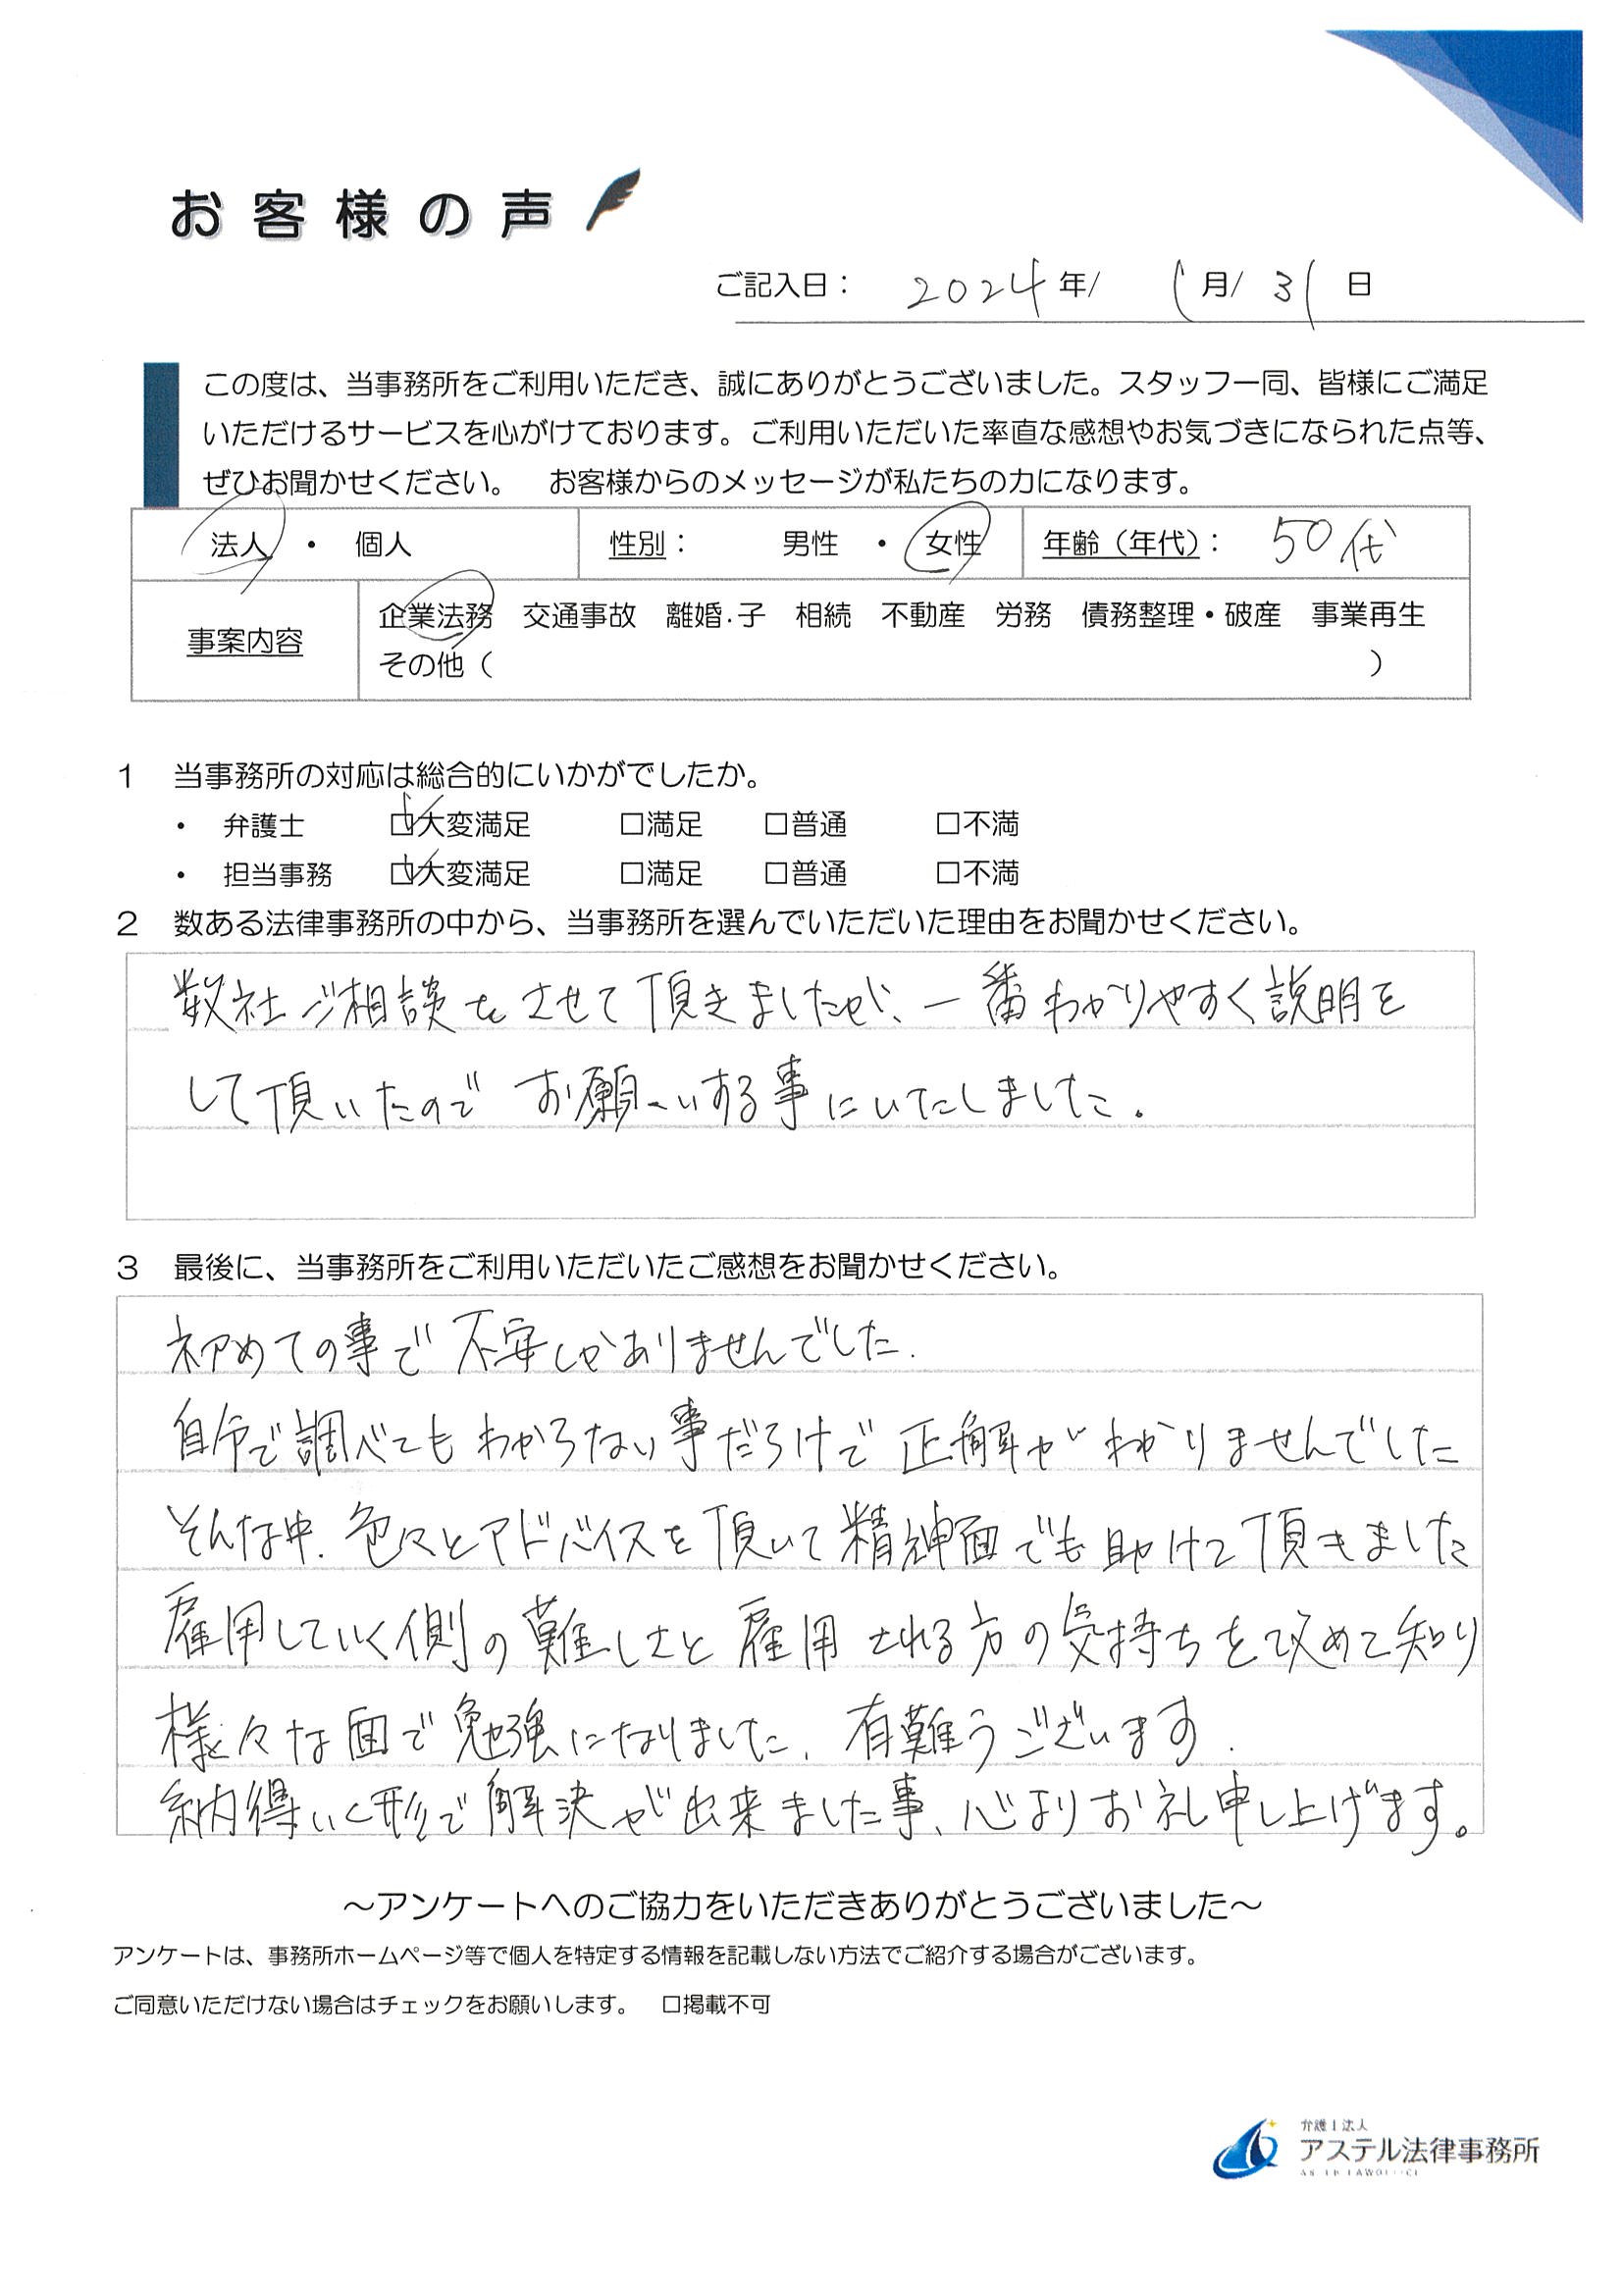 お客様の声
ご記入日： 2024年/ 1月/ 31日
この度は、当事務所をご利用いただき、誠にありがとうございました。スタッフ一同、皆様にご満足
いただけるサービスを心がけております。ご利用いただいた率直な感想やお気づきになられた点等、
ぜひお聞かせください。　お客様からのメッセージが私たちの力になります。
法人 ・ 個人 性別： 男性 ・ 女性 年齢（年代）： 50代
企業法務 交通事故 離婚・子 相続 不動産 労務 債務整理・破産 事業再生
事案内容
その他（ ）
1 当事務所の対応は総合的にいかがでしたか。
・ 弁護士 ☑大変満足 □満足 □普通 □不満
・ 担当事務 ☑大変満足 □満足 □普通 □不満
2 数ある法律事務所の中から、当事務所を選んでいただいた理由をお聞かせください。
数社ご相談をさせて頂きましたが、一番わかりやすく説明を
して頂いたので お願いする事にいたしました。
3 最後に、当事務所をご利用いただいたご感想をお聞かせください。
初めての事で不安しかありませんでした.
自分で調べてもわからない事だらけで正解がわかりませんでした
そんな中、色々とアドバイスを頂いて精神面でも助けて頂きました
雇用していく側の難しさと雇用される方の気持ちを改めて知り
様々な面で勉強になりました。有難うございます.
納得いく形で解決が出来ました事、心よりお礼申し上げます。
～アンケートへのご協力をいただきありがとうございました～
アンケートは、事務所ホームページ等で個人を特定する情報を記載しない方法でご紹介する場合がございます。
ご同意いただけない場合はチェックをお願いします。　□掲載不可
弁護士法人
アステル法律事務所